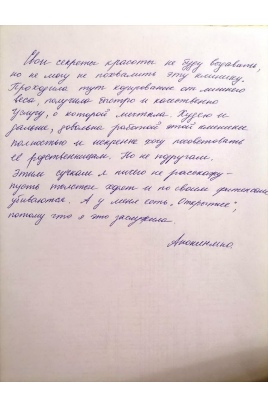 Свои секреты красоты не буду выдавать,
но не могу не похвалить эту клинику.
Проходила тут кодирование от лишнего
веса, получила быстро и качественно
услугу, о которой мечтала. Худею и
дальше, довольна работой этой клиники
полностью и искренне хочу посоветовать
её родственницам. Но не подругам.
Этим сучкам я ничего не расскажу -
пусть толстые ходят и по своим фитнесам
убиваются. А у меня есть "Открытие",
потому что я это заслужила.
Анонимно.